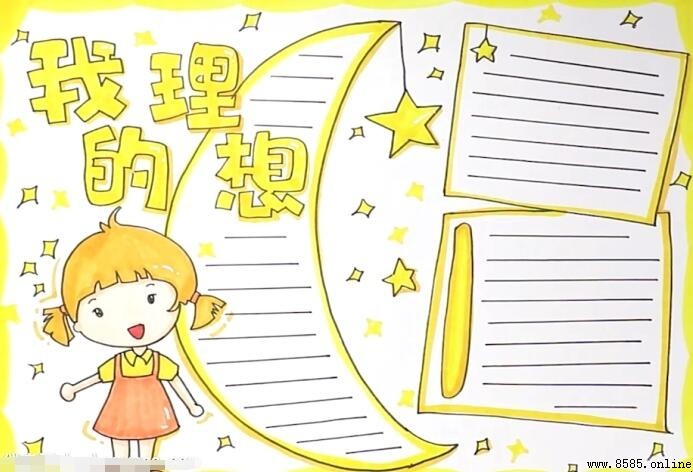 我的理想
www.8585.online